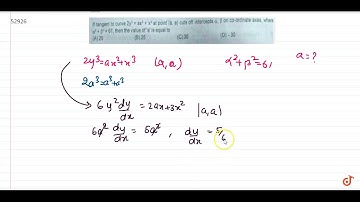 52926
If tangent to curve 2y³ = ax² + x³ at point (a, a) cuts off intercepts α, β on co-ordinate axes, where
α² + β² = 61, then the value of 'a' is equal to
(A) 20 (B) 25 (C) 30 (D) -30
2y³=ax²+x³ (a,a) α²+β²=61 a=?
2a³=a³+a³
6y² dy/dx = 2ax+3x² |(a,a)
6a² dy/dx = 5a² , dy/dx = 5/6